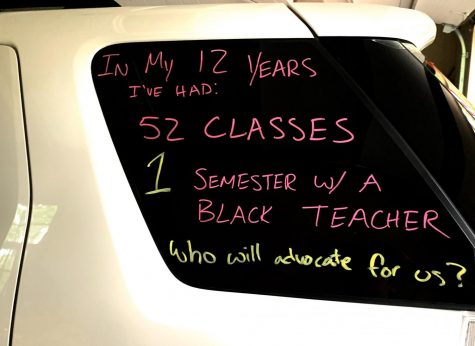 In My 12 Years
I've Had:
52 Classes
1 Semester w/ a
Black Teacher
Who will advocate for us?